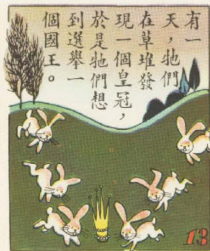 有一
天，牠們
在草堆發
現一個皇冠，
於是牠們想
到選舉一
個國王。
13